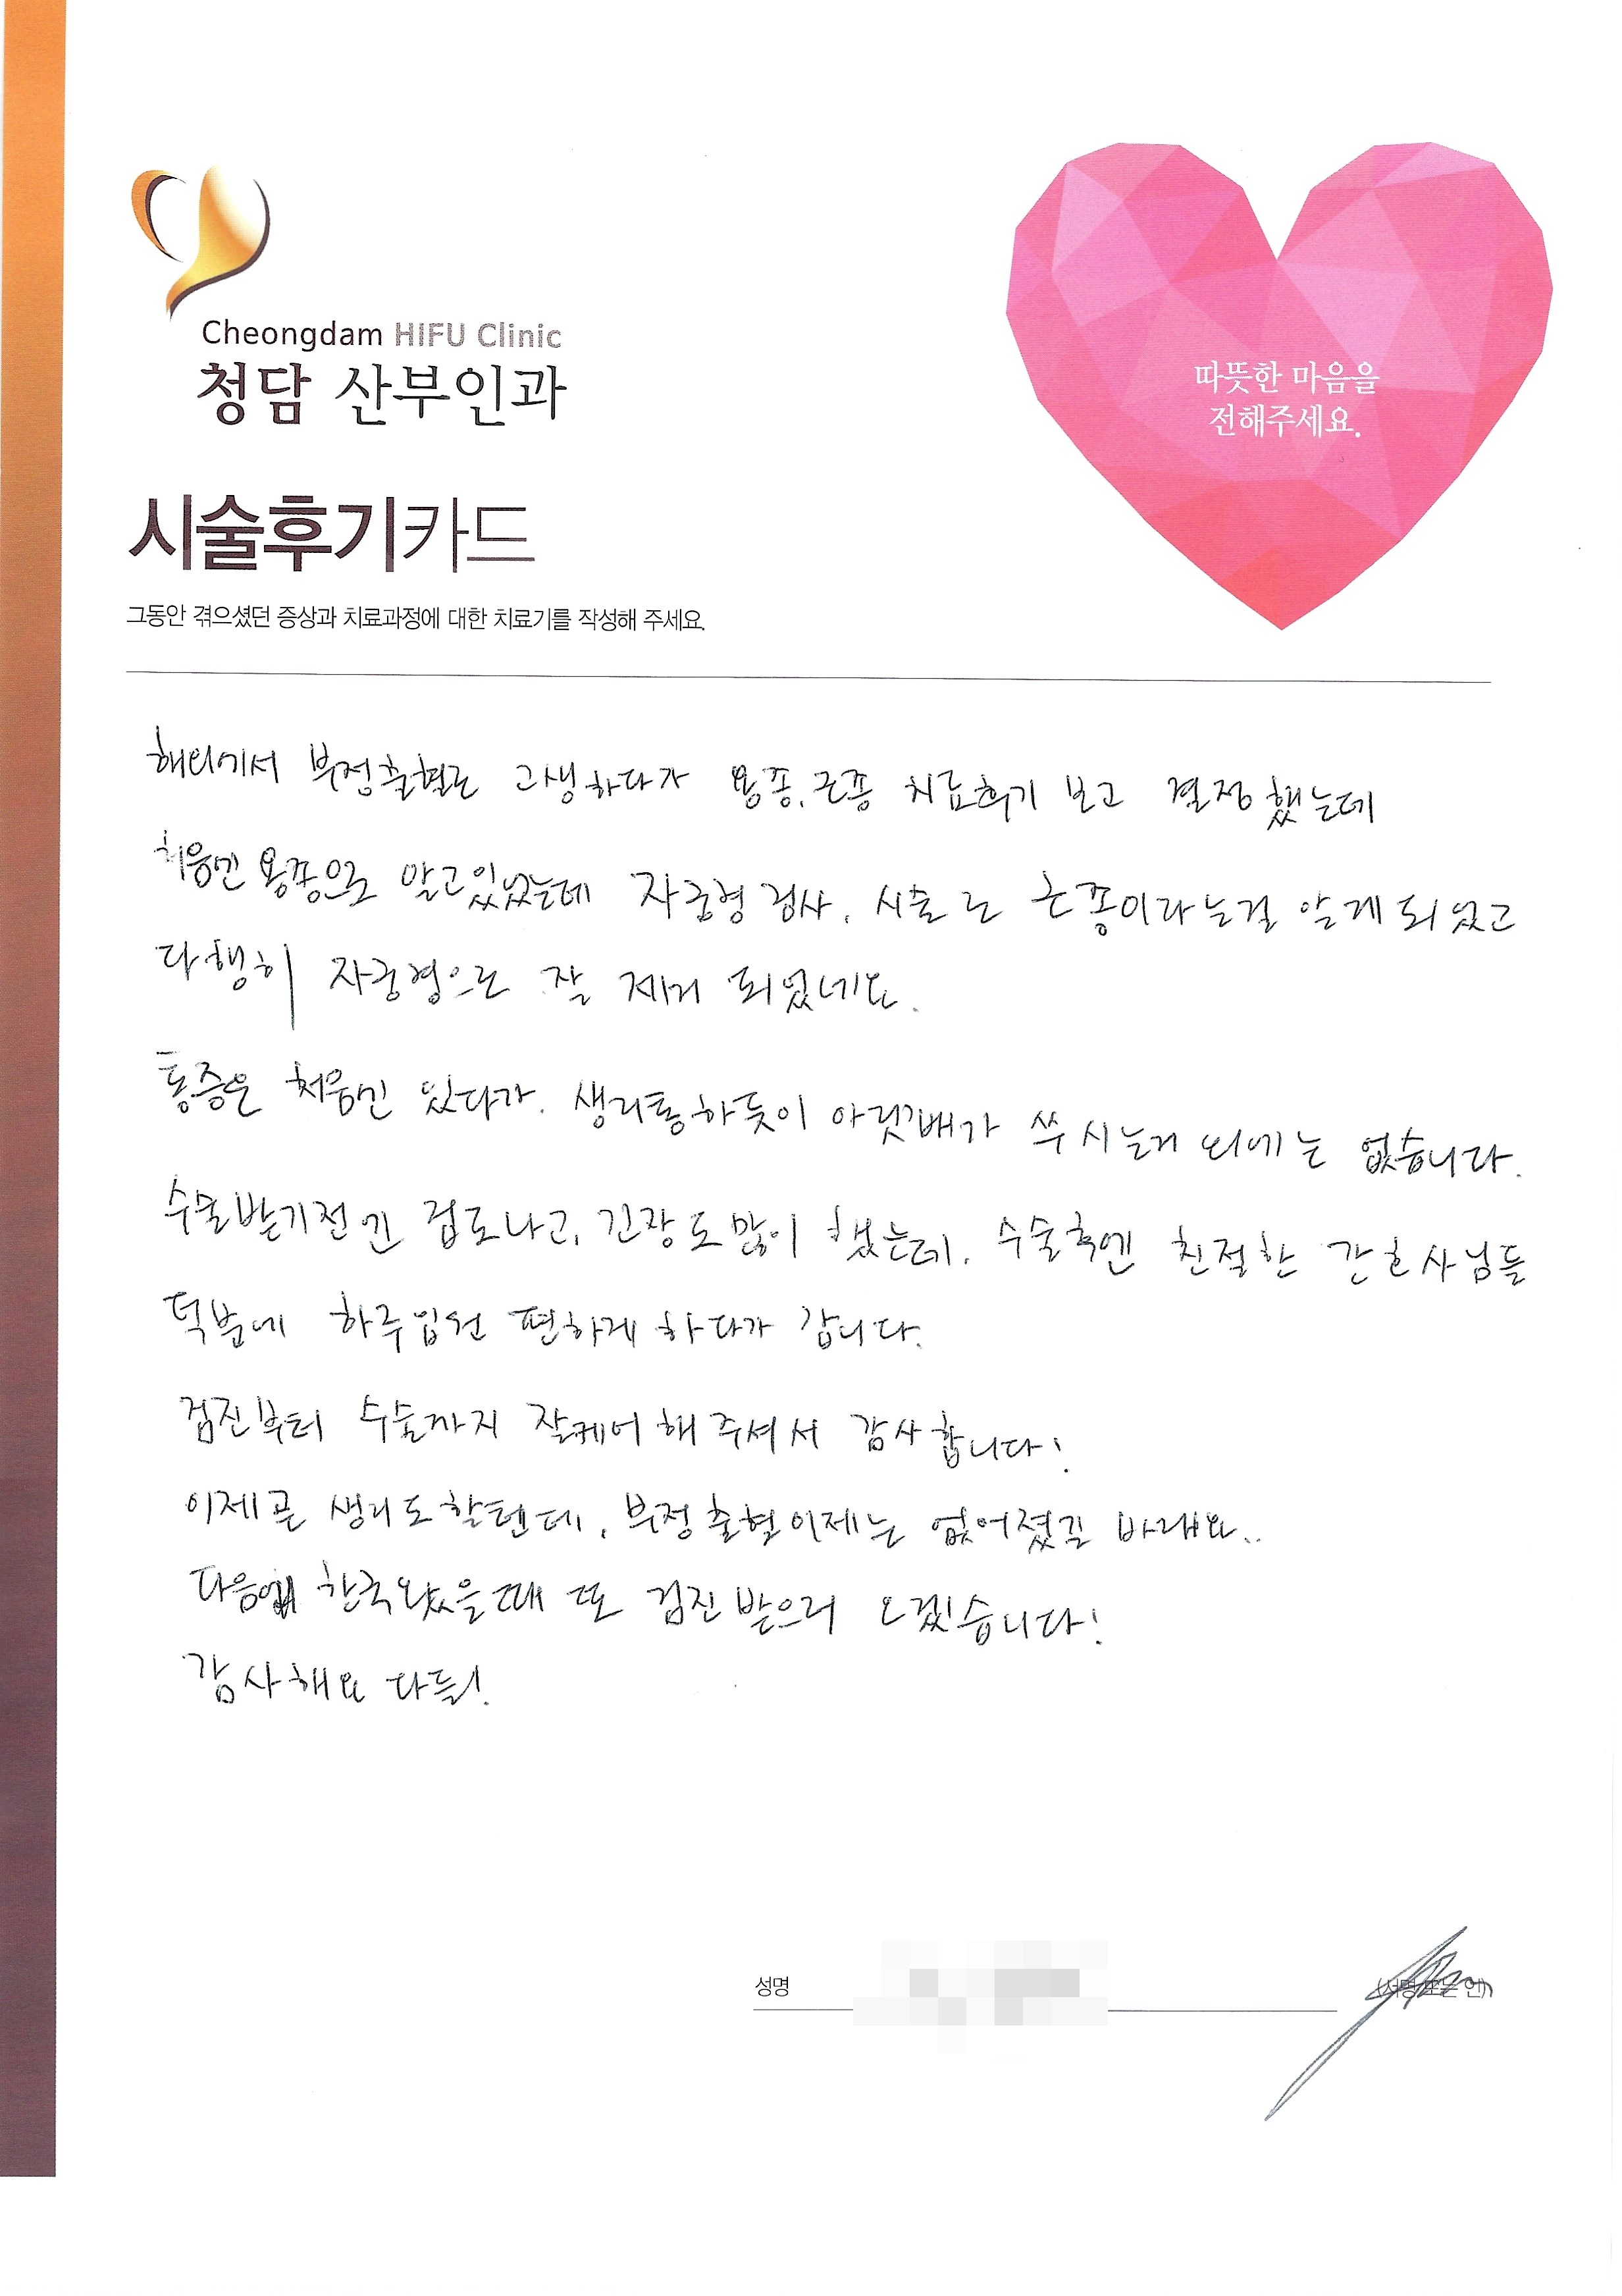 Cheongdam HIFU Clinic
청담 산부인과
따뜻한 마음을
전해주세요.
시술후기카드
그동안 겪으셨던 증상과 치료과정에 대한 치료기를 작성해 주세요.
해외에서 부정출혈로 고생하다가 용종,근종 치료후기 보고 결정했는데
처음엔 용종으로 알고있었는데 자궁경 검사, 시술로 근종이라는걸 알게 되었고
다행히 자궁경으로 잘 제거 되었네요.
통증은 처음엔 있다가, 생리통하듯이 아랫배가 쑤시는거 외에는 없습니다.
수술받기전엔 겁도나고, 긴장도많이 했는데, 수술후엔 친절한 간호사님들
덕분에 하루입원 편하게 하다가 갑니다.
검진부터 수술까지 잘케어해주셔서 감사합니다!
이제곧 생리도할텐데, 부정출혈이제는 없어졌길 바래요..
다음에 한국왔을때 또 검진받으러 오겠습니다!
감사해요 다들!
성명
(서명 또는 인)